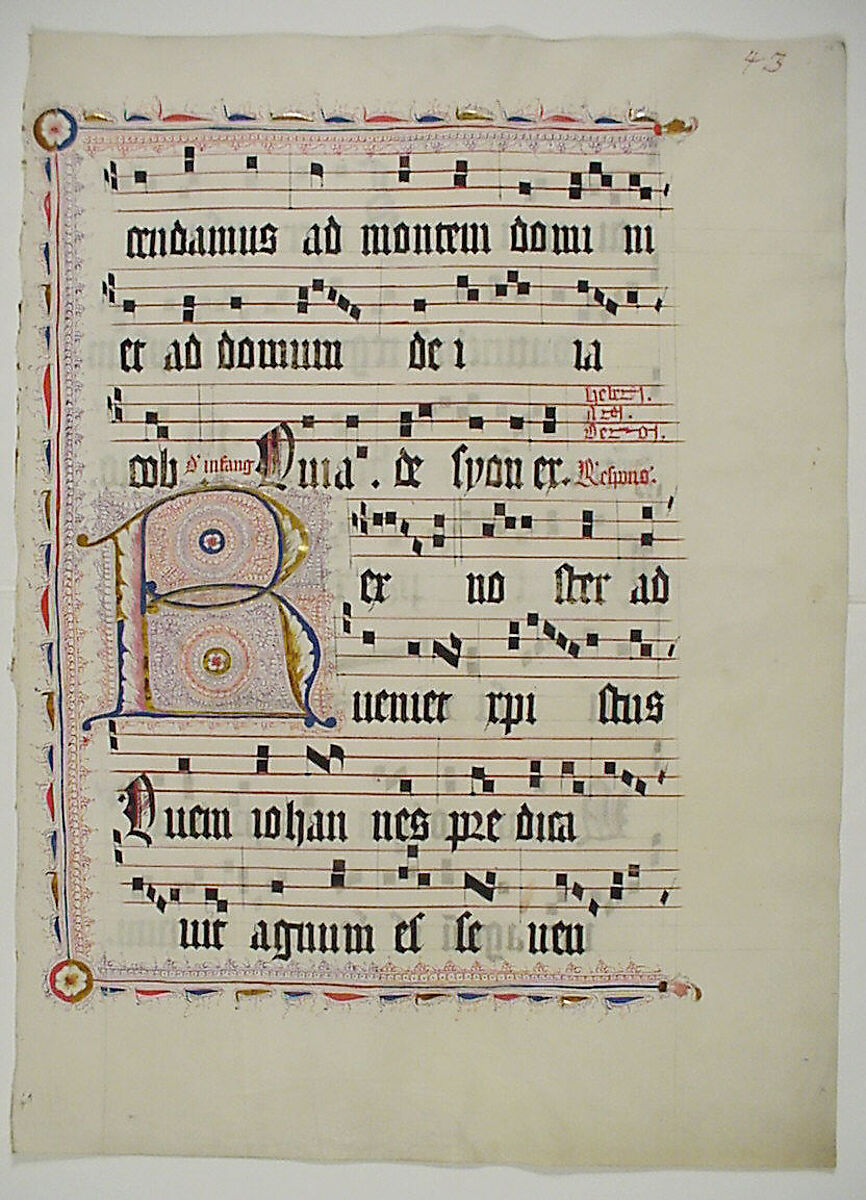 43
cendamus ad montem domi ni
et ad domum de i ia
cob Quia. de syon ex. Respons'.
R ex no ster ad
ueniet xpi stus
Quem iohan nes pre dica
uit agnum es se uen